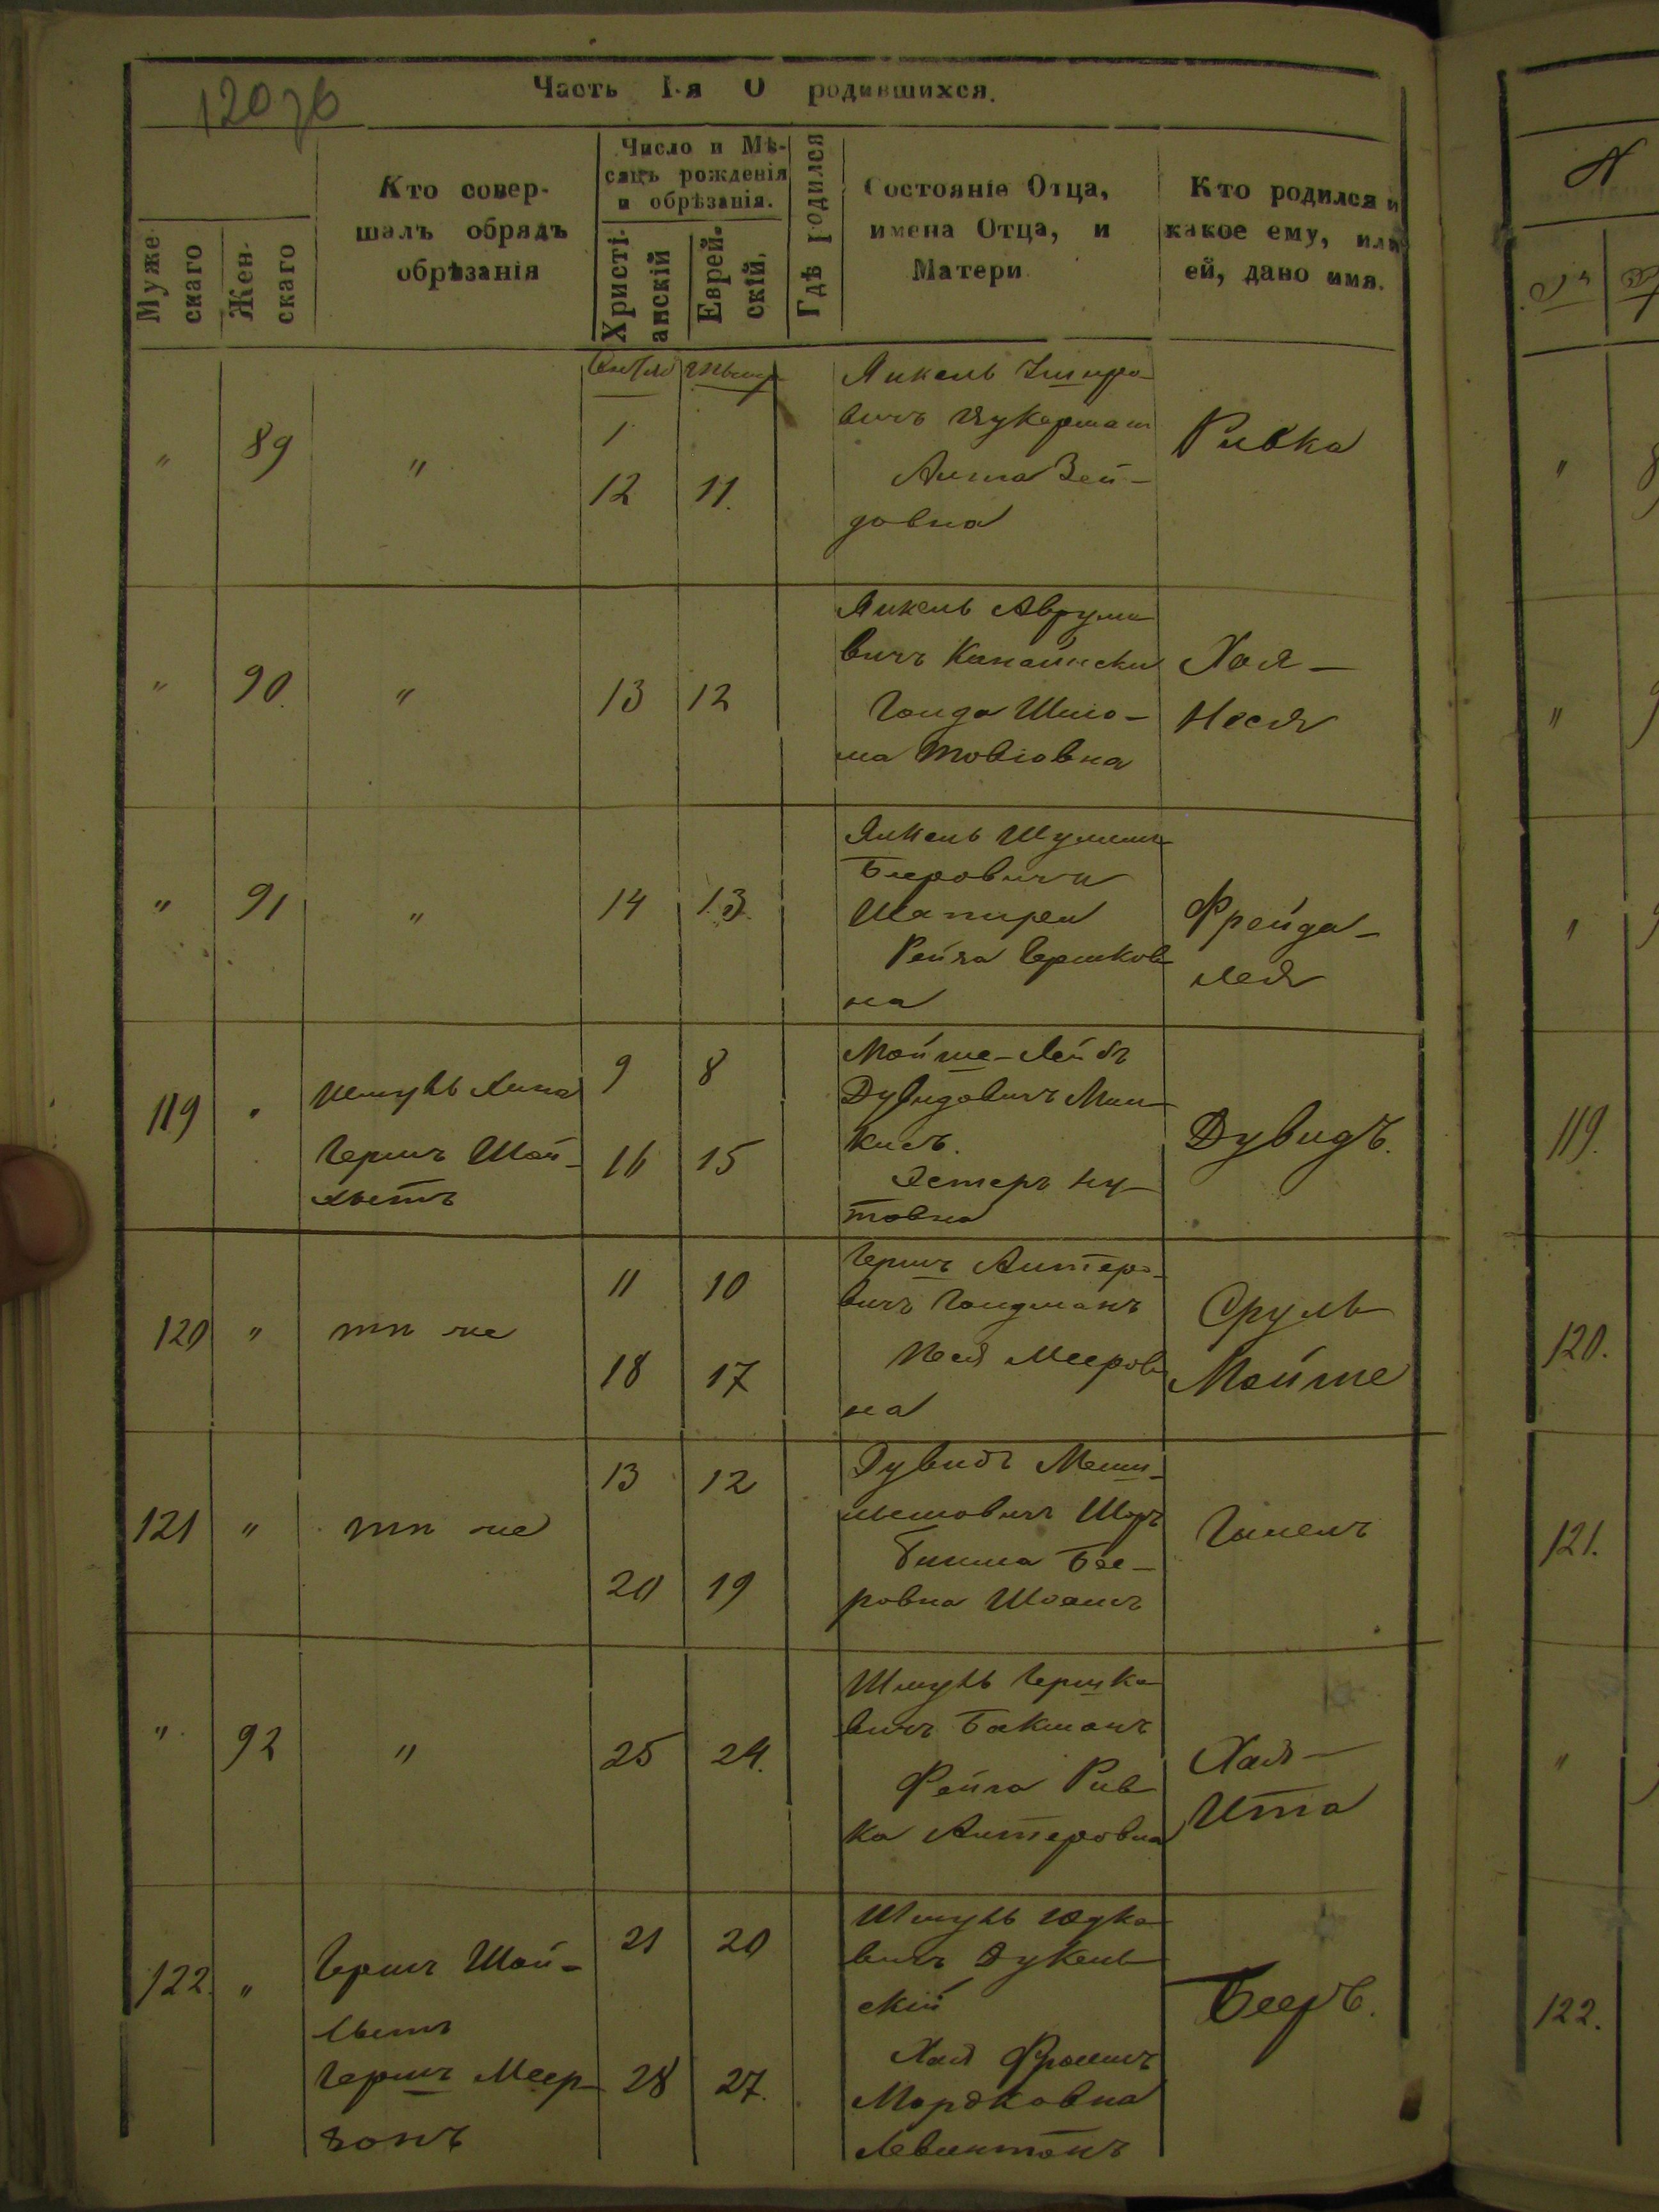 120 зв
Часть I-я О родившихся.
Муже
скаго
Жен-
скаго
Кто совер-
шалъ обрядъ
обрѣзанія
Число и Мѣ-
сяцъ рожденія
и обрѣзанія.
Христі-
анскій
Еврей-
скій.
Гдѣ родился
Состояніе Отца,
имена Отца, и
Матери
Кто родился и
какое ему, или
ей, дано имя.
" 89 "
1
12 11.
Янкель
вичъ Цукерман
Зей-
довна
Ривка
" 90. "
13 12
Янкель Аврумо
вичъ
Голда Шпо-
ма Товіовна
Хая-
Неся
" 91 "
14 13.
Янкель Шулим
Беерович
Шапиреи
Рейза Гершков
на
Фрейда-
Лея
119 "
Герш Шой-
хветъ
9 8
16 15
Мойше-Лейбъ
Дувидовичъ Мин
кисъ.
Эстеръ Ну
товна
Дувидъ.
120 " тп же
11 10
18 17
Гершъ Алтеро-
вичъ Голдманъ
Песя Мееров
на
Сруль
Мойше
121 " тп же
13 12
20 19
Дувидъ
Шоръ
Бее-
ровна
" 92 "
25 24.
Шмуль Гершко
вичъ Бакманъ
Фейга Рив
ка Алтеровна
Хая-
Ита
122. "
Гершъ Шой-
хветъ
Гершъ Меер
зонъ
21 20
28 27.
Шмуль Юдко
вичъ Дукель
скій
Хая Фромит
Мордковна
Левинтонъ
Бееръ.
119.
120.
121.
122.